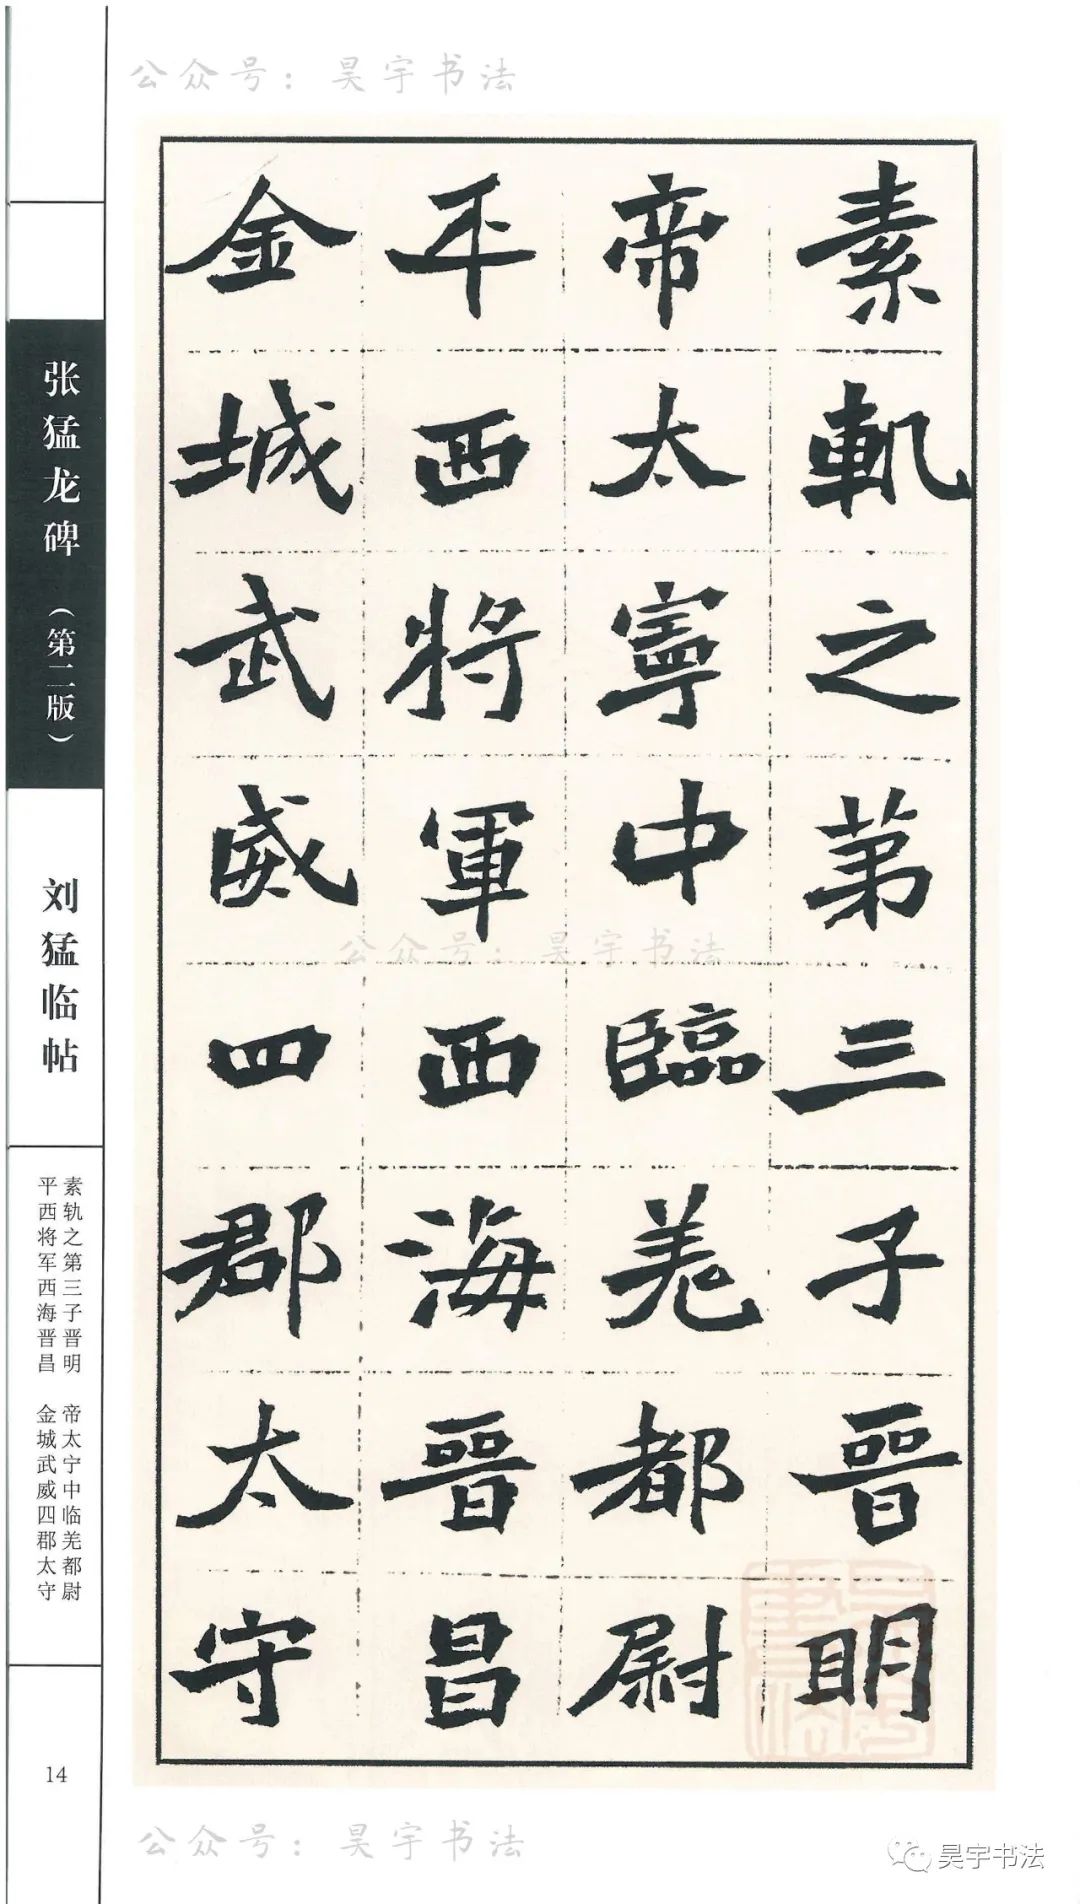 公众号：昊宇书法
素軌之第三子晉明
帝太寧中臨羌都尉
平西將軍西海晉昌
金城武威四郡太守
公众号：昊宇书法
张猛龙碑（第二版）
刘猛临帖
素轨之第三子晋明　帝太宁中临羌都尉
平西将军西海晋昌　金城武威四郡太守
14
公众号：昊宇书法
昊宇书法